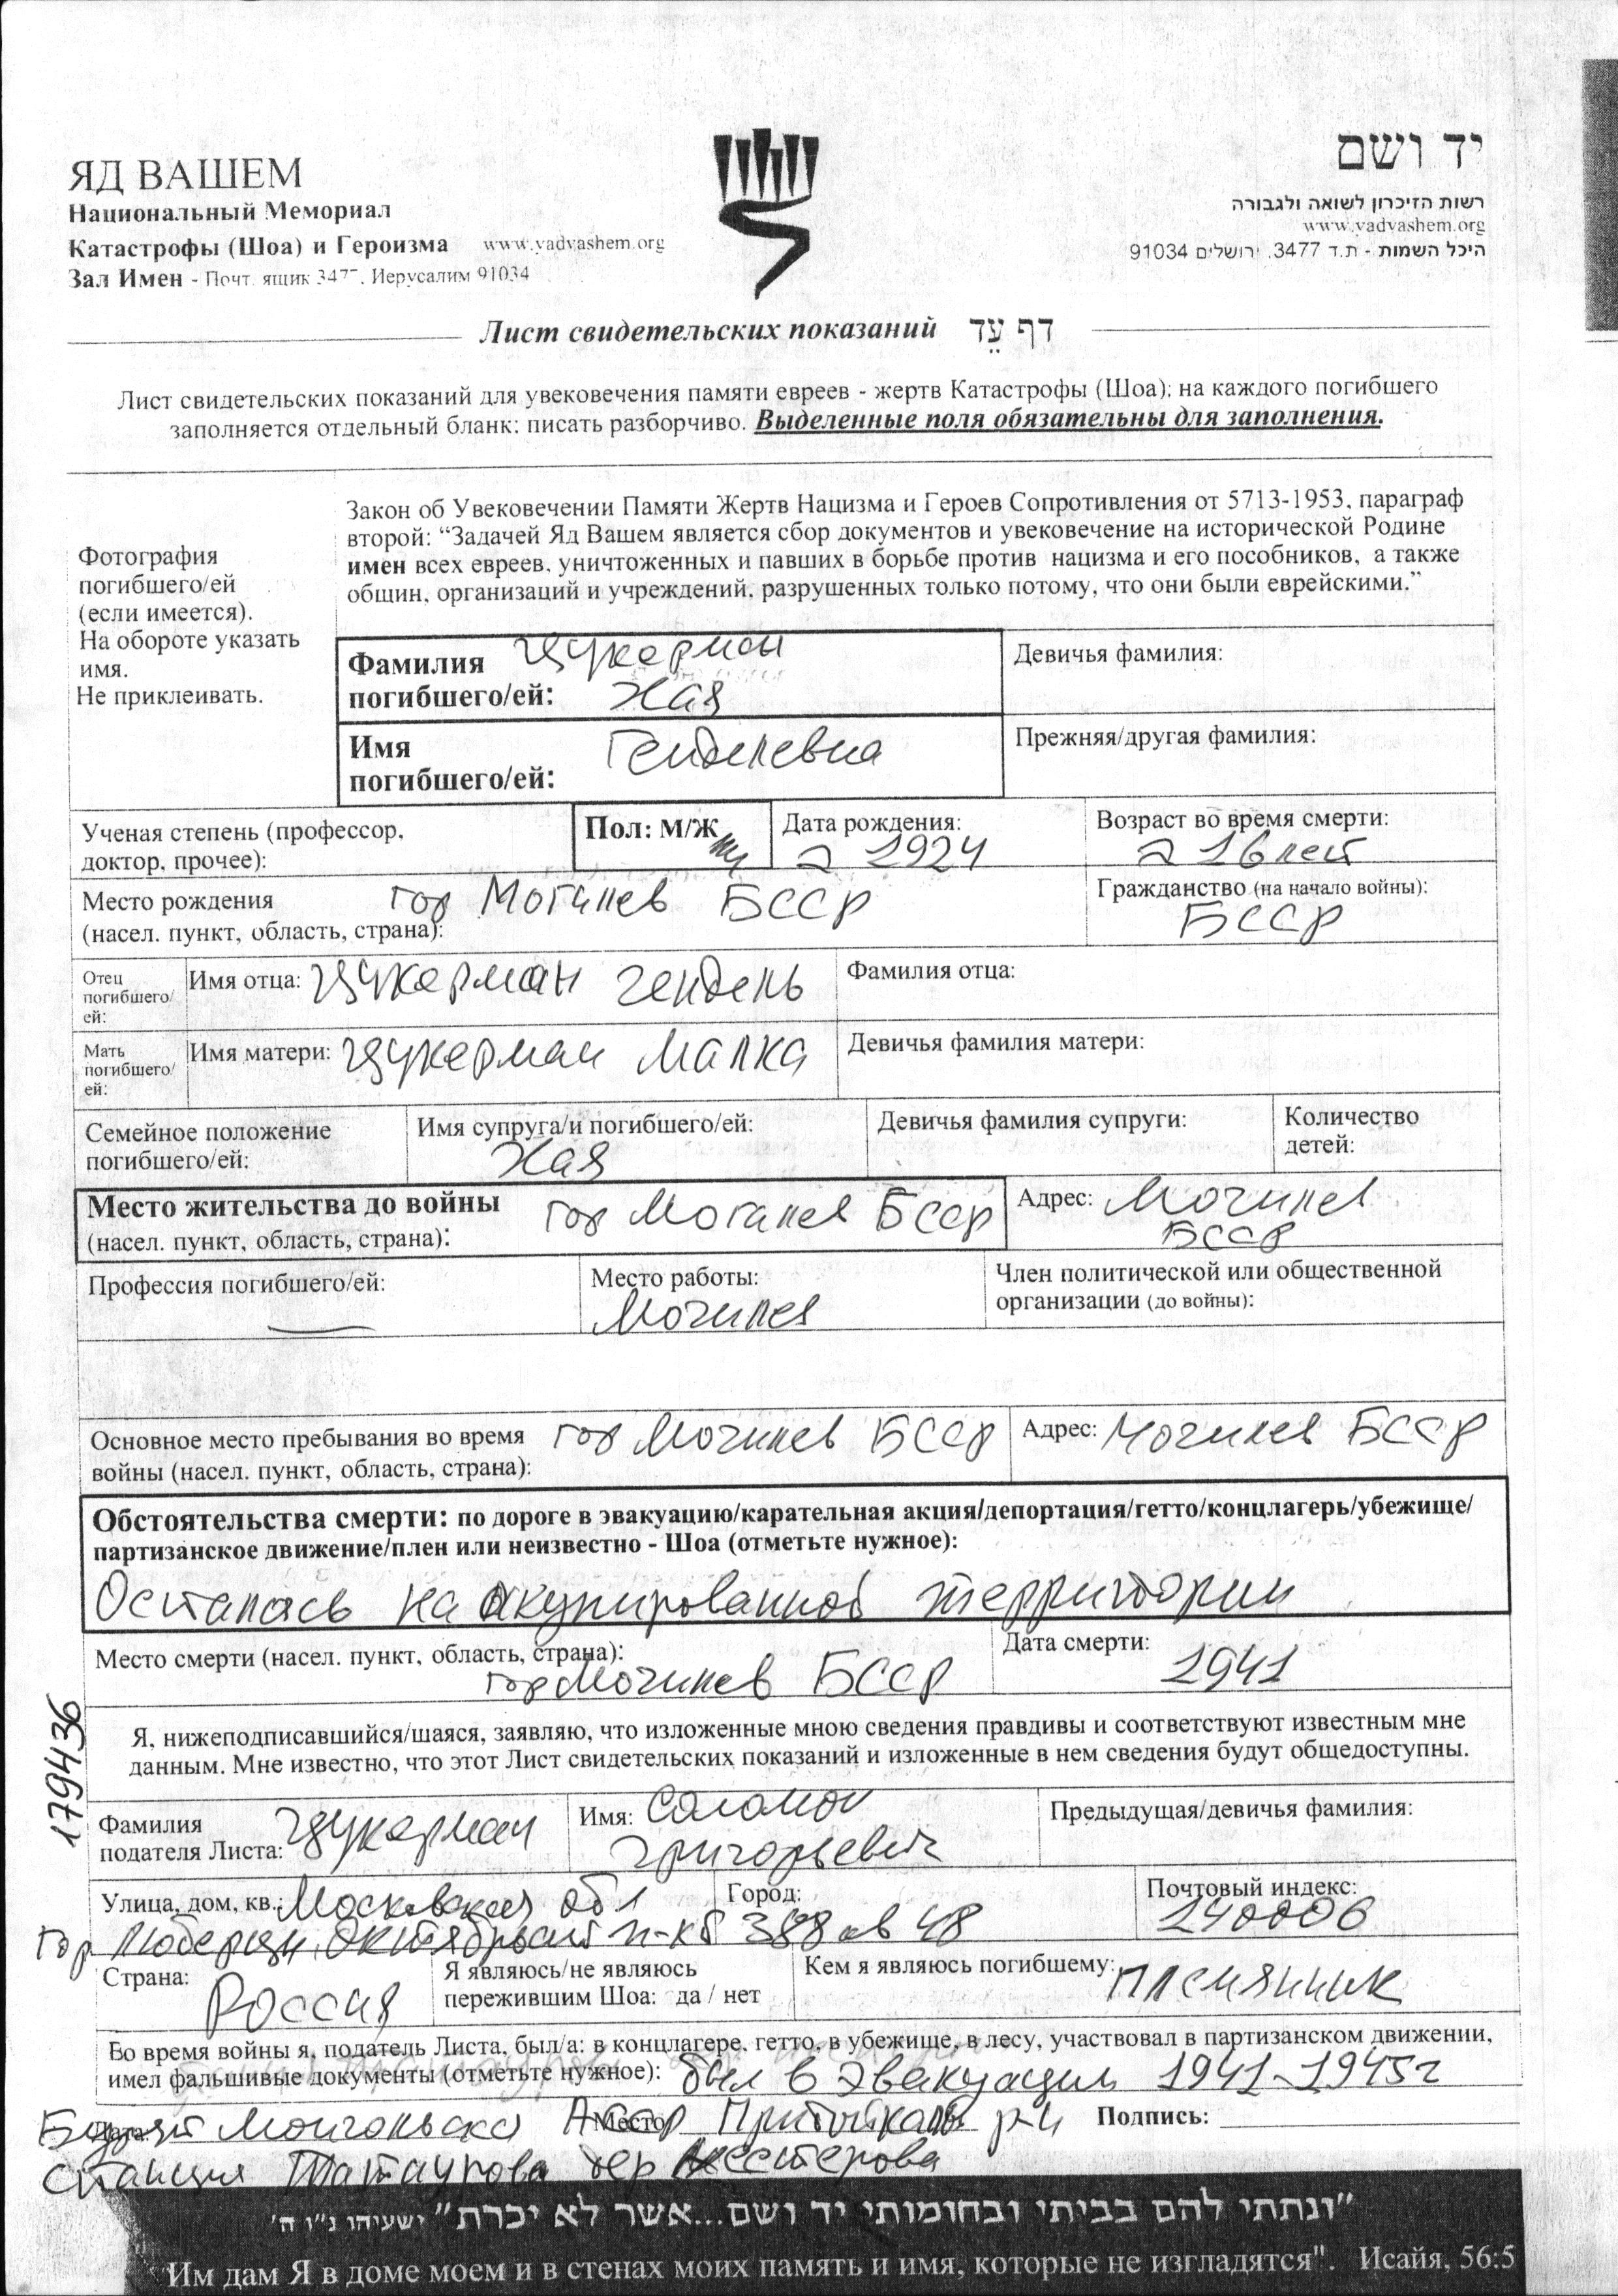 ЯД ВАШЕМ
Национальный Мемориал
Катастрофы (Шоа) и Героизма www.yadvashem.org
Зал Имен - Почт. ящик 3477, Иерусалим 91034
יד ושם
רשות הזיכרון לשואה ולגבורה
www.yadvashem.org
היכל השמות - ת.ד 3477, ירושלים 91034
Лист свидетельских показаний דף עֵד
Лист свидетельских показаний для увековечения памяти евреев - жертв Катастрофы (Шоа); на каждого погибшего
заполняется отдельный бланк; писать разборчиво. Выделенные поля обязательны для заполнения.
Фотография
погибшего/ей
(если имеется).
На обороте указать
имя.
Не приклеивать.
Закон об Увековечении Памяти Жертв Нацизма и Героев Сопротивления от 5713-1953, параграф
второй: “Задачей Яд Вашем является сбор документов и увековечение на исторической Родине
имен всех евреев, уничтоженных и павших в борьбе против нацизма и его пособников, а также
общин, организаций и учреждений, разрушенных только потому, что они были еврейскими.”
Фамилия погибшего/ей: Цукерман Хая
Девичья фамилия:
Имя погибшего/ей: Генделевна
Прежняя/другая фамилия:
Ученая степень (профессор, доктор, прочее):
Пол: М/Ж
Дата рождения: 1924
Возраст во время смерти: 16 лет
Место рождения (насел. пункт, область, страна): гор Могилев БССР
Гражданство (на начало войны): БССР
Отец погибшего/ей:
Имя отца: Цукерман гендель
Фамилия отца:
Мать погибшего/ей:
Имя матери: Цукерман Малка
Девичья фамилия матери:
Семейное положение погибшего/ей:
Имя супруга/и погибшего/ей: Хая
Девичья фамилия супруги:
Количество детей:
Место жительства до войны (насел. пункт, область, страна): гор Могилев БССР
Адрес: Могилев БССР
Профессия погибшего/ей: —
Место работы: Могилев
Член политической или общественной организации (до войны):
Основное место пребывания во время войны (насел. пункт, область, страна): гор Могилев БССР
Адрес: Могилев БССР
Обстоятельства смерти: по дороге в эвакуацию/карательная акция/депортация/гетто/концлагерь/убежище/
партизанское движение/плен или неизвестно - Шоа (отметьте нужное):
Осталась на окупированной территории
Место смерти (насел. пункт, область, страна): гор Могилев БССР
Дата смерти: 1941
179436
Я, нижеподписавшийся/шаяся, заявляю, что изложенные мною сведения правдивы и соответствуют известным мне
данным. Мне известно, что этот Лист свидетельских показаний и изложенные в нем сведения будут общедоступны.
Фамилия подателя Листа: Цукерман
Имя: Соломон Григорьевич
Предыдущая/девичья фамилия:
Улица, дом, кв.: Московская обл
Город:
Почтовый индекс: 140006
Гор Люберцы, Октябрьский п-кт 388 кв 48
Страна: Россия
Я являюсь/не являюсь пережившим Шоа: да / нет
Кем я являюсь погибшему: племянник
Во время войны я, податель Листа, был/а: в концлагере, гетто, в убежище, в лесу, участвовал в партизанском движении,
имел фальшивые документы (отметьте нужное): был в эвакуации 1941-1945г
Дата: Место: Подпись:
Бурят Монгольска АССР р-н
Станция Татаурова дер Нестерова
"ונתתי להם בביתי ובחומותי יד ושם...אשר לא יכרת" ישעיהו נ"ו ה'
"Им дам Я в доме моем и в стенах моих память и имя, которые не изгладятся". Исайя, 56:5